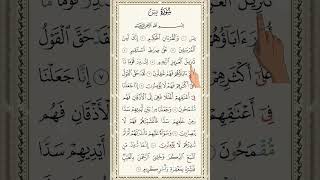 سُورَةُ يسٓ
بِسْمِ ٱللَّهِ ٱلرَّحْمَٰنِ ٱلرَّحِيمِ
يسٓ ۝ وَٱلْقُرْءَانِ ٱلْحَكِيمِ ۝ إِنَّكَ لَمِنَ
ٱلْمُرْسَلِينَ ۝ عَلَىٰ صِرَٰطٍ مُّسْتَقِيمٍ ۝
تَنزِيلَ ٱلْعَزِيزِ ٱلرَّحِيمِ ۝ لِتُنذِرَ قَوْمًا مَّآ
أُنذِرَ ءَابَآؤُهُمْ فَهُمْ غَٰفِلُونَ ۝ لَقَدْ حَقَّ ٱلْقَوْلُ
عَلَىٰٓ أَكْثَرِهِمْ فَهُمْ لَا يُؤْمِنُونَ ۝ إِنَّا جَعَلْنَا
فِىٓ أَعْنَٰقِهِمْ أَغْلَٰلًا فَهِىَ إِلَى ٱلْأَذْقَانِ فَهُم
مُّقْمَحُونَ ۝ وَجَعَلْنَا مِنۢ بَيْنِ أَيْدِيهِمْ سَدًّا
وَمِنْ خَلْفِهِمْ سَدًّا فَأَغْشَيْنَٰهُمْ فَهُمْ لَا يُبْصِرُونَ ۝
وَسَوَآءٌ عَلَيْهِمْ ءَأَنذَرْتَهُمْ أَمْ لَمْ تُنذِرْهُمْ لَا يُؤْمِنُونَ ۝
إِنَّمَا تُنذِرُ مَنِ ٱتَّبَعَ ٱلذِّكْرَ وَخَشِىَ ٱلرَّحْمَٰنَ بِٱلْغَيْبِ
فَبَشِّرْهُ بِمَغْفِرَةٍ وَأَجْرٍ كَرِيمٍ